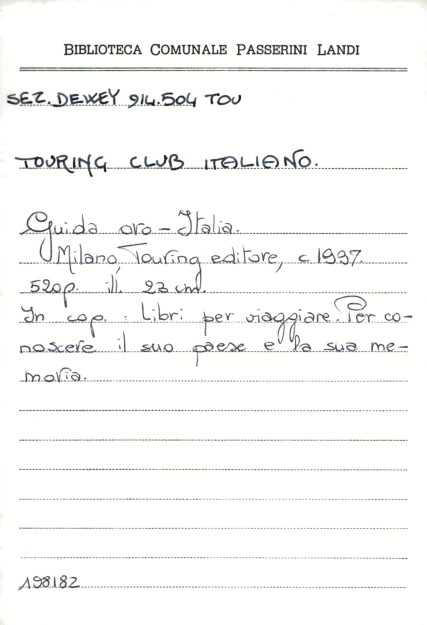 BIBLIOTECA COMUNALE PASSERINI LANDI
SEZ. DEWEY 914.504 TOU
TOURING CLUB ITALIANO.
Guida oro - Italia.
Milano, Touring editore, c. 1997.
520p. ill. 23 cm.
In cop. : Libri per viaggiare. Per co-
noscere il suo paese e la sua me-
moria.
198182